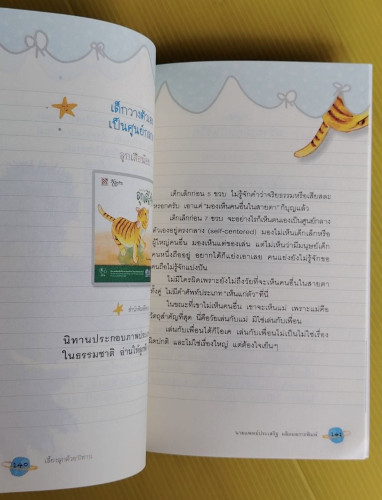 เด็กวางตัวเอง
เป็นศูนย์กลาง
นิทานประกอบภาพประ
ในธรรมชาติ อ่านให้ลูกฟัง
๑๔๐
เลี้ยงลูกด้วยนิทาน
เด็กเล็กก่อน 5 ขวบ ไม่รู้จักคำว่าจริยธรรมหรือเสียสละ
หรอกครับ เอาแค่ "มองเห็นคนอื่นในสายตา" ก็บุญแล้ว
เด็กเล็กก่อน 7 ขวบ จะอย่างไรก็เห็นตนเองเป็นศูนย์กลาง
ตัวเองอยู่ตรงกลาง (self-centered) มองไม่เห็นเด็กเล็กหรือ
ผู้ใหญ่คนอื่น มองเห็นแต่ของเล่น แต่ไม่เห็นว่ามีมนุษย์เด็ก
คนหนึ่งถืออยู่ อยากได้ก็แย่งเอาเลย คนแย่งยังไม่รู้จักขอ
คนถือไม่รู้จักแบ่งปัน
ไม่มีใครผิดเพราะยังไม่ถึงวัยที่จะเห็นคนอื่นในสายตา
ทั้งคู่ ไม่มีคำศัพท์ประเภท "เห็นแก่ตัว" ที่นี่
ในขณะที่เขาไม่เห็นคนอื่น เขาจะเห็นแม่ เพราะแม่คือ
วัตถุสำคัญที่สุด นี่คือวัยเล่นกับแม่ มิใช่เล่นกับเพื่อน
เล่นกับเพื่อนได้ก็โอเค เล่นกับเพื่อนไม่เป็นไม่ใช่เรื่อง
ผิดปกติ และไม่ใช่เรื่องใหญ่ แต่ต้องใจเย็นๆ
นายแพทย์ประเสริฐ ผลิตผลการพิมพ์
๑๔๑